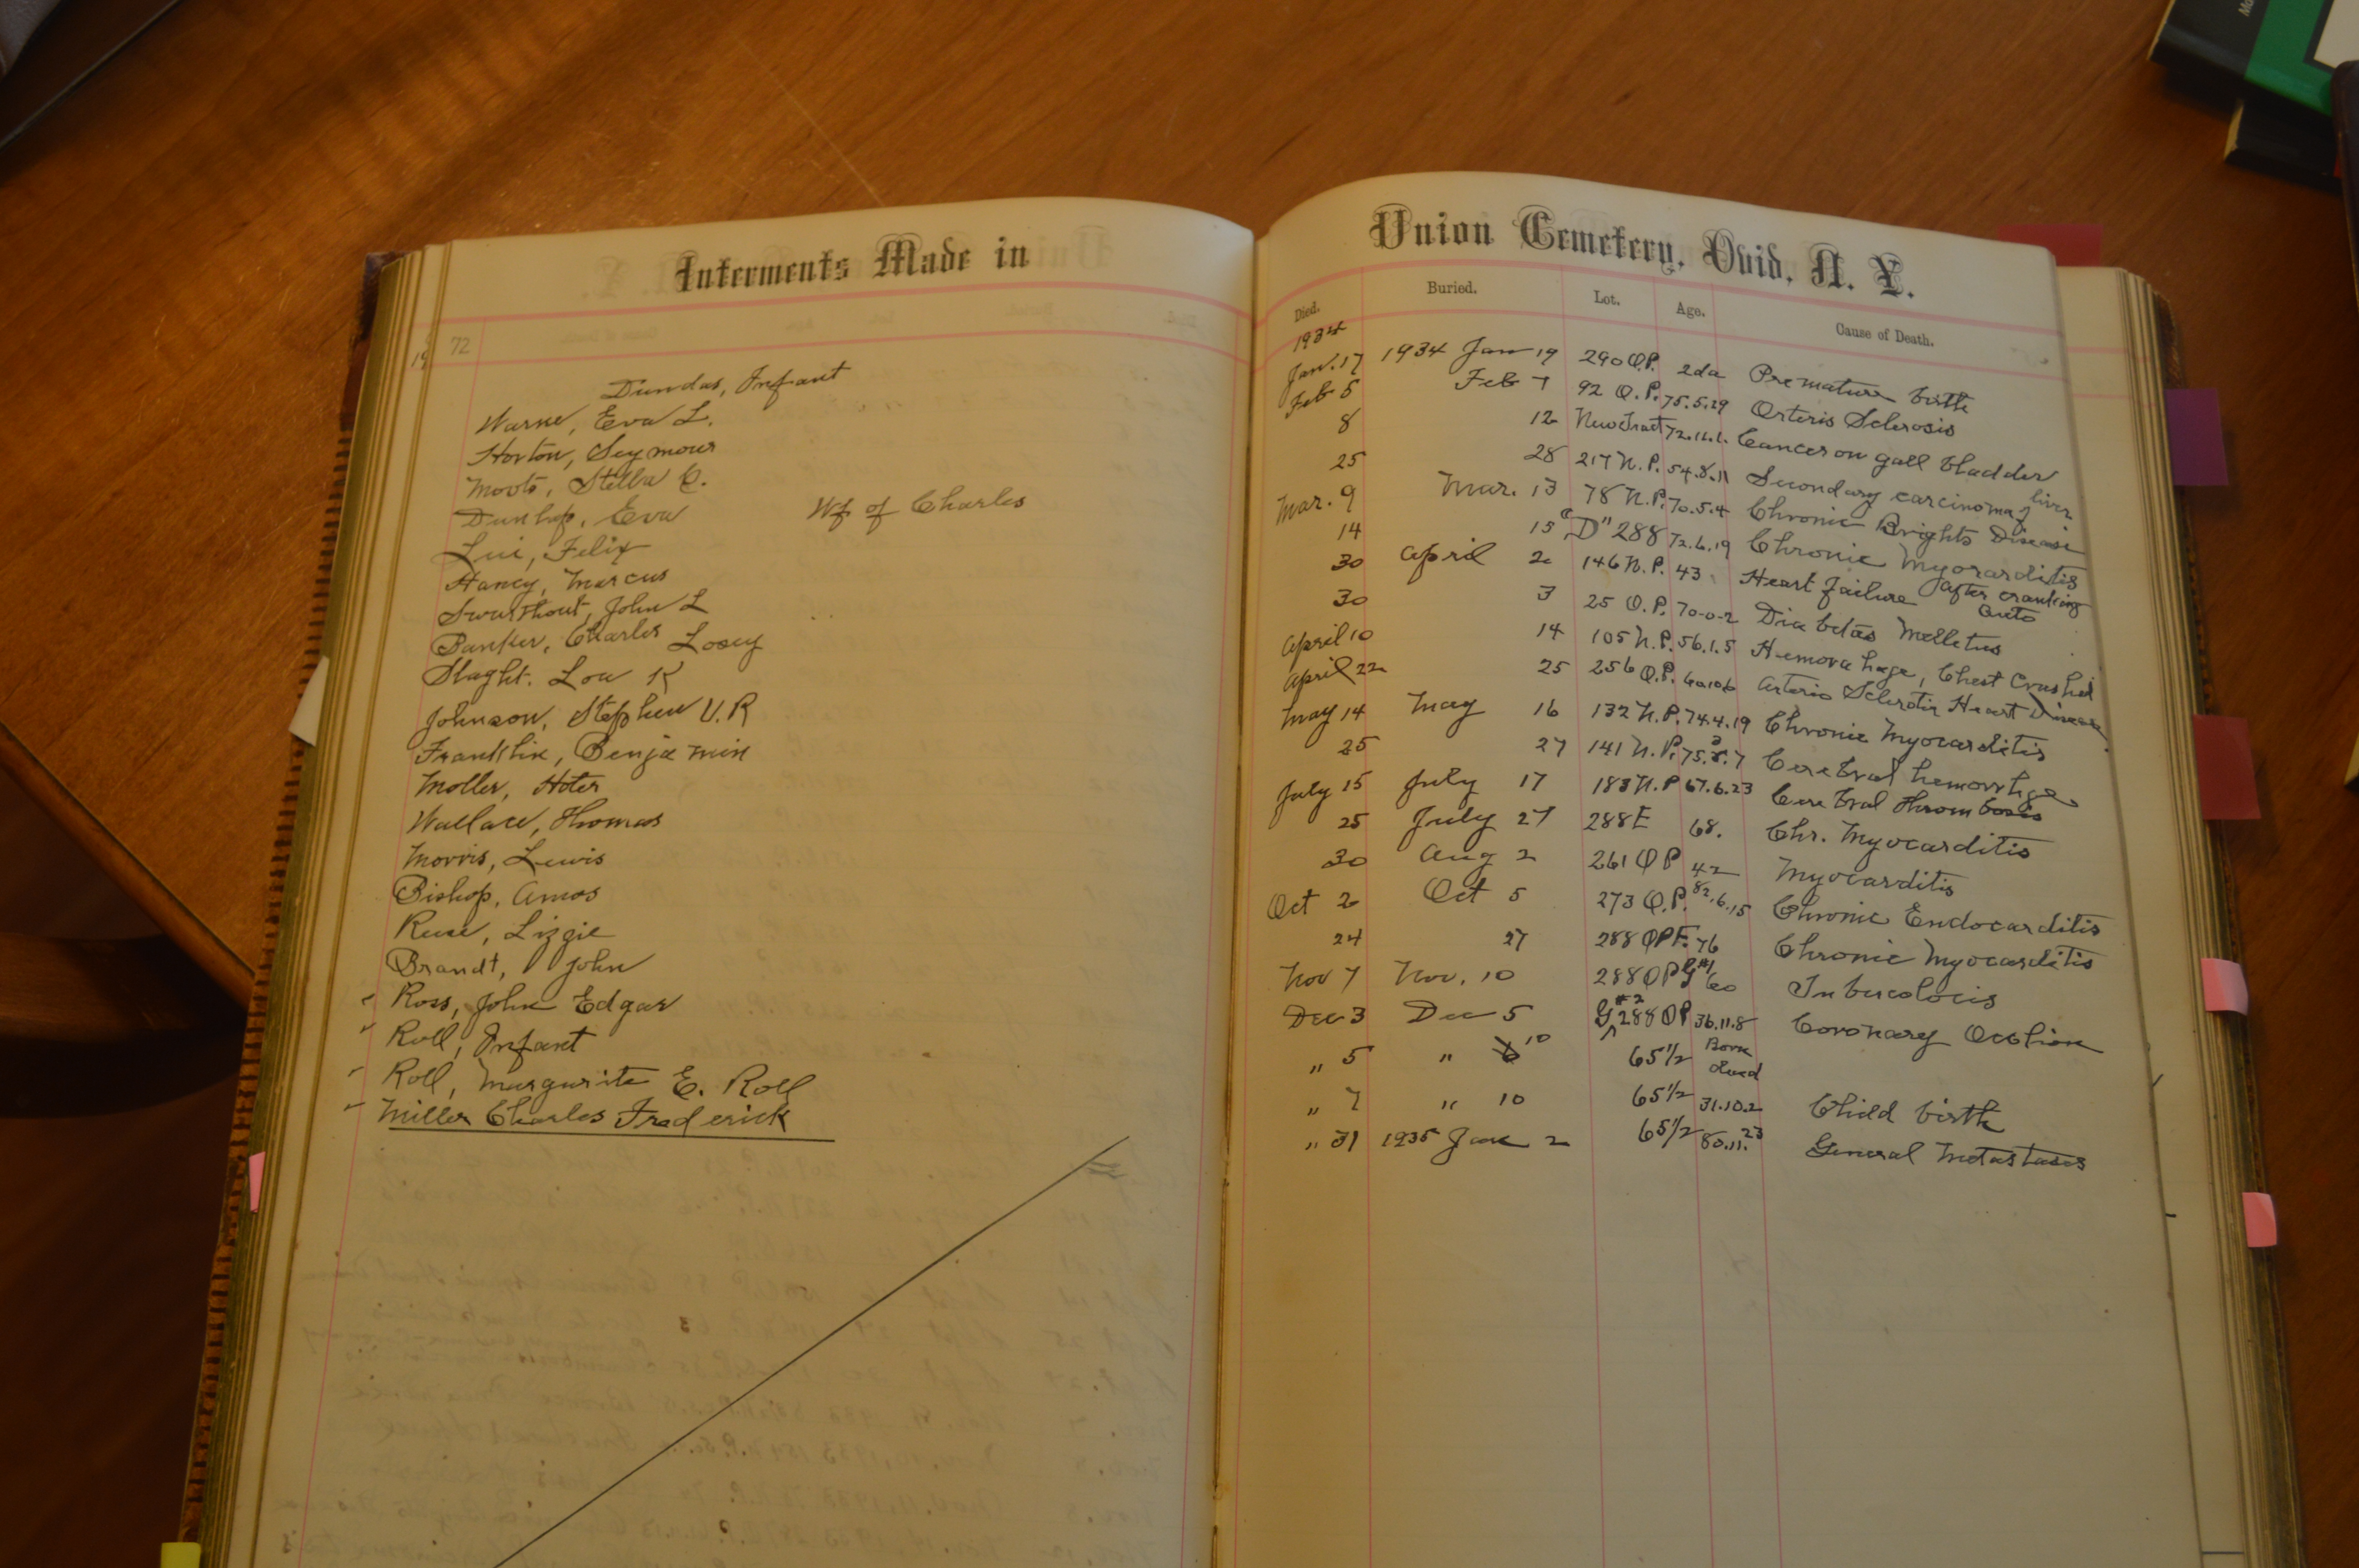 Interments Made in
72
Dundas, Infant
Warne, Eva L.
Horton, Seymour
Moots, Stella C.
Dunlap, Eva Wf of Charles
Lui, Felix
Haney, Marcus
Swarthout, John L
Banker, Charles Losey
Slaght. Lou K
Johnson, Stephen V. R
Franklin, Benjamin
Moller, Hoter
Wallace, Thomas
Morris, Lewis
Bishop, Amos
Ruse, Lizzie
Brandt, John
Ross, John Edgar
Roll, Infant
Roll, Margurite E. Roll
Miller Charles Frederick
Union Cemetery, Ovid, N. Y.
Died. Buried. Lot. Age. Cause of Death.
1934
Jan. 17 1934 Jan 19 290 O.P. 2da Premature birth
Feb 5 Feb 7 92 O.P. 75.5.29 Arteris Sclerosis
8 12 New Tract Cancer on gall bladder
25 28 217 N.P. 54.8.11 Secondary carcinoma liver
Mar. 9 Mar. 13 78 N.P. 70.5.4 Chronic Brights Disease
14 15 "D" 288 72.6.19 Chronic Myocarditis
30 April 2 146 N.P. 43 Heart failure after cranking auto
30 3 25 O.P. 70-0-2 Diabetes Melletus
April 10 14 105 N.P. 56.1.5 Hemorahage, Chest Crushed
April 22 25 256 O.P. Arterio Sclerotic Heart Disease
May 14 May 16 132 N.P. 74.4.19 Chronic Myocarditis
25 27 141 N.P. Cerebral hemorrhge
July 15 July 17 183 N.P 67.6.23 Cerebral thrombosis
25 July 27 288E 68. Chr. Myocarditis
30 Aug 2 261 OP 42 Myocarditis
Oct 2 Oct 5 273 O.P. 82.6.15 Chronic Endocarditis
24 27 288 OP F. 76 Chronic Myocarditis
Nov 7 Nov. 10 288 OP G #1 60 Tubercolocis
Dec 3 Dec 5 G #2 288 OP 36.11.8 Coronary Oclusion
" 5 " 10 65 1/2 Born dead
" 7 " 10 65 1/2 31.10.2 Child birth
" 31 1935 Jan 2 65 1/2 80.11.23 General Metastases